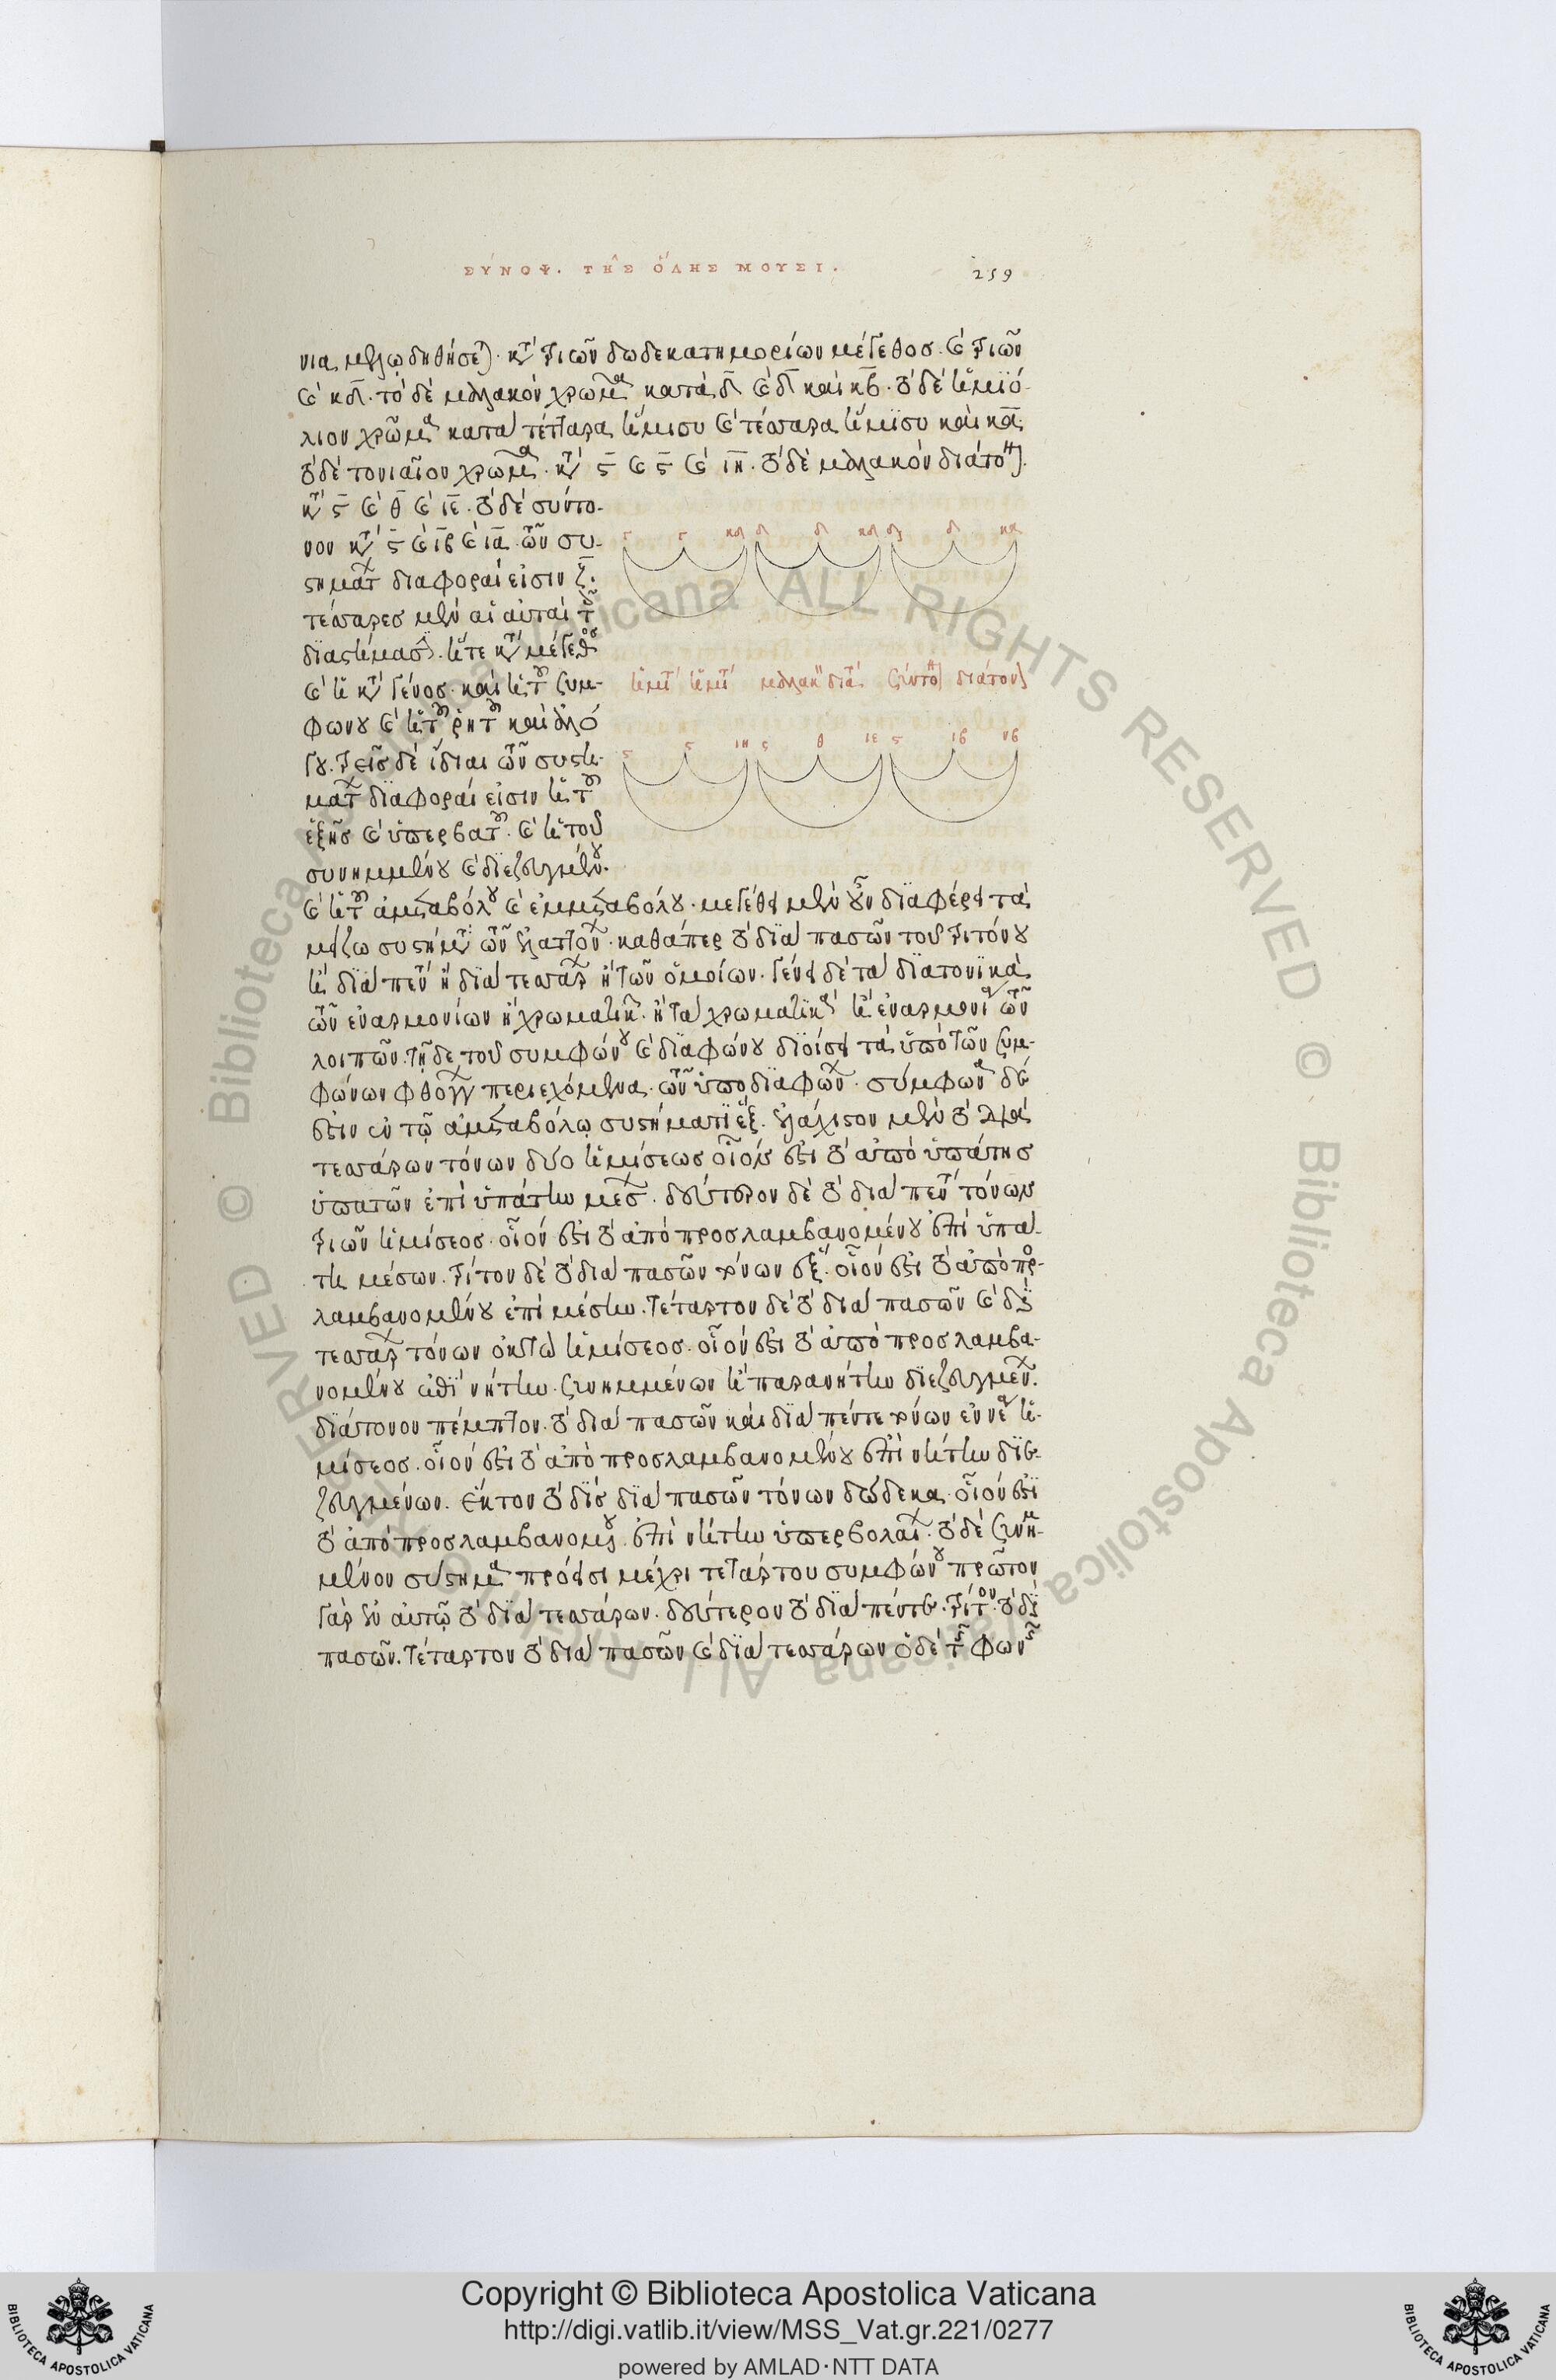 ΣΎΝΟΨ. ΤΗ͂Σ ὍΛΗΣ ΜΟΥΣΙ.
259
νια μελῳδηθήσεται. κατὰ τριῶν δωδεκατημορίων μέγεθος. καὶ τριῶν
καὶ κδ. τὸ δὲ μαλακὸν χρῶμα κατὰ δ καὶ δ καὶ κβ. τὸ δὲ ἡμιό-
λιον χρῶμα κατὰ τέτταρα ἥμισυ καὶ τέσσαρα ἥμισυ καὶ κα
τὸ δὲ τονιαῖον χρῶμα. κατὰ ϛ καὶ ϛ καὶ ιη. τὸ δὲ μαλακὸν διάτονον.
κατὰ ϛ καὶ θ καὶ ιε. τὸ δὲ σύντο-
νον κατὰ ϛ καὶ ιβ καὶ ια. τῶν συ-
στημάτων διαφοραί εἰσιν ζ.
τέσσαρες μὲν αἱ αὐταὶ τοῖς
διαστήμασιν. ἥτε κατὰ μέγεθος
καὶ ἡ κατὰ γένος. καὶ ἡ τοῦ συμ-
φώνου καὶ ἡ τοῦ ῥητοῦ καὶ ἀλό
γου. τρεῖς δὲ ἴδιαι τῶν συστη-
μάτων διαφοραί εἰσιν ἡ τοῦ
ἑξῆς καὶ ὑπερβατοῦ. καὶ ἡ τοῦ
συνημμένου καὶ διεζευγμένου.
καὶ ἡ τοῦ ἀμεταβόλου καὶ ἐμμεταβόλου. μεγέθει μὲν οὖν διαφέρει τὰ
μείζω συστήματα τῶν ἐλαττόνων. καθάπερ τὸ διὰ πασῶν τοῦ τριτόνου
ἢ διὰ πέντε ἢ διὰ τεσσάρων ἢ τῶν ὁμοίων. γένει δὲ τὰ διατονικὰ
τῶν ἐναρμονίων ἢ χρωματικῶν. ἢ τὰ χρωματικὰ ἢ ἐναρμόνια τῶν
λοιπῶν. τῇ δε τοῦ συμφώνου καὶ διαφώνου διοίσει τὰ ὑπὸ τῶν συμ-
φώνων φθόγγων περιεχόμενα. τῶν ὑπὸ διαφώνων. σύμφωνα δέ
ἐστιν ἐν τῷ ἀμεταβόλῳ συστήματι ἕξ. ἐλάχιστον μὲν τὸ διὰ
τεσσάρων τόνων δύο ἡμίσεως οἷόν ἐστι τὸ ἀπὸ ὑπάτης
ὑπατῶν ἐπὶ ὑπάτην μέσων. δεύτερον δὲ τὸ διὰ πέντε τόνων
τριῶν ἡμίσεος. οἷόν ἐστι τὸ ἀπὸ προσλαμβανομένου ἐπὶ ὑπά-
τη μέσων. τρίτον δὲ τὸ διὰ πασῶν τόνων ἕξ. οἷόν ἐστι τὸ ἀπὸ προσ-
λαμβανομένου ἐπὶ μέσην. τέταρτον δὲ τὸ διὰ πασῶν καὶ διὰ
τεσσάρων τόνων ὀκτὼ ἡμίσεος. οἷόν ἐστι τὸ ἀπὸ προσλαμβα-
νομένου ἐπὶ νήτην. συνημμένων ἢ παρανήτην διεζευγμένων.
διάτονον πέμπτον. τὸ διὰ πασῶν καὶ διὰ πέντε τόνων ἐννέα ἡ-
μίσεος. οἷόν ἐστι τὸ ἀπὸ προσλαμβανομένου ἐπὶ νήτην διε-
ζευγμένων. ἕκτον τὸ δὶς διὰ πασῶν τόνων δώδεκα. οἷόν ἐστι
τὸ ἀπὸ προσλαμβανομένου. ἐπὶ νήτην ὑπερβολαίων. τὸ δὲ συνημ-
μένον σύστημα πρόεισι μέχρι τετάρτου συμφώνου πρῶτον
γὰρ ἐν αὐτῷ τὸ διὰ τεσσάρων. δεύτερον τὸ διὰ πέντε. τρίτον. τὸ διὰ
πασῶν. τέταρτον τὸ διὰ πασῶν καὶ διὰ τεσσάρων ὁ δὲ τῆς φωνῆς
Copyright © Biblioteca Apostolica Vaticana
http://digi.vatlib.it/view/MSS_Vat.gr.221/0277
powered by AMLAD·NTT DATA